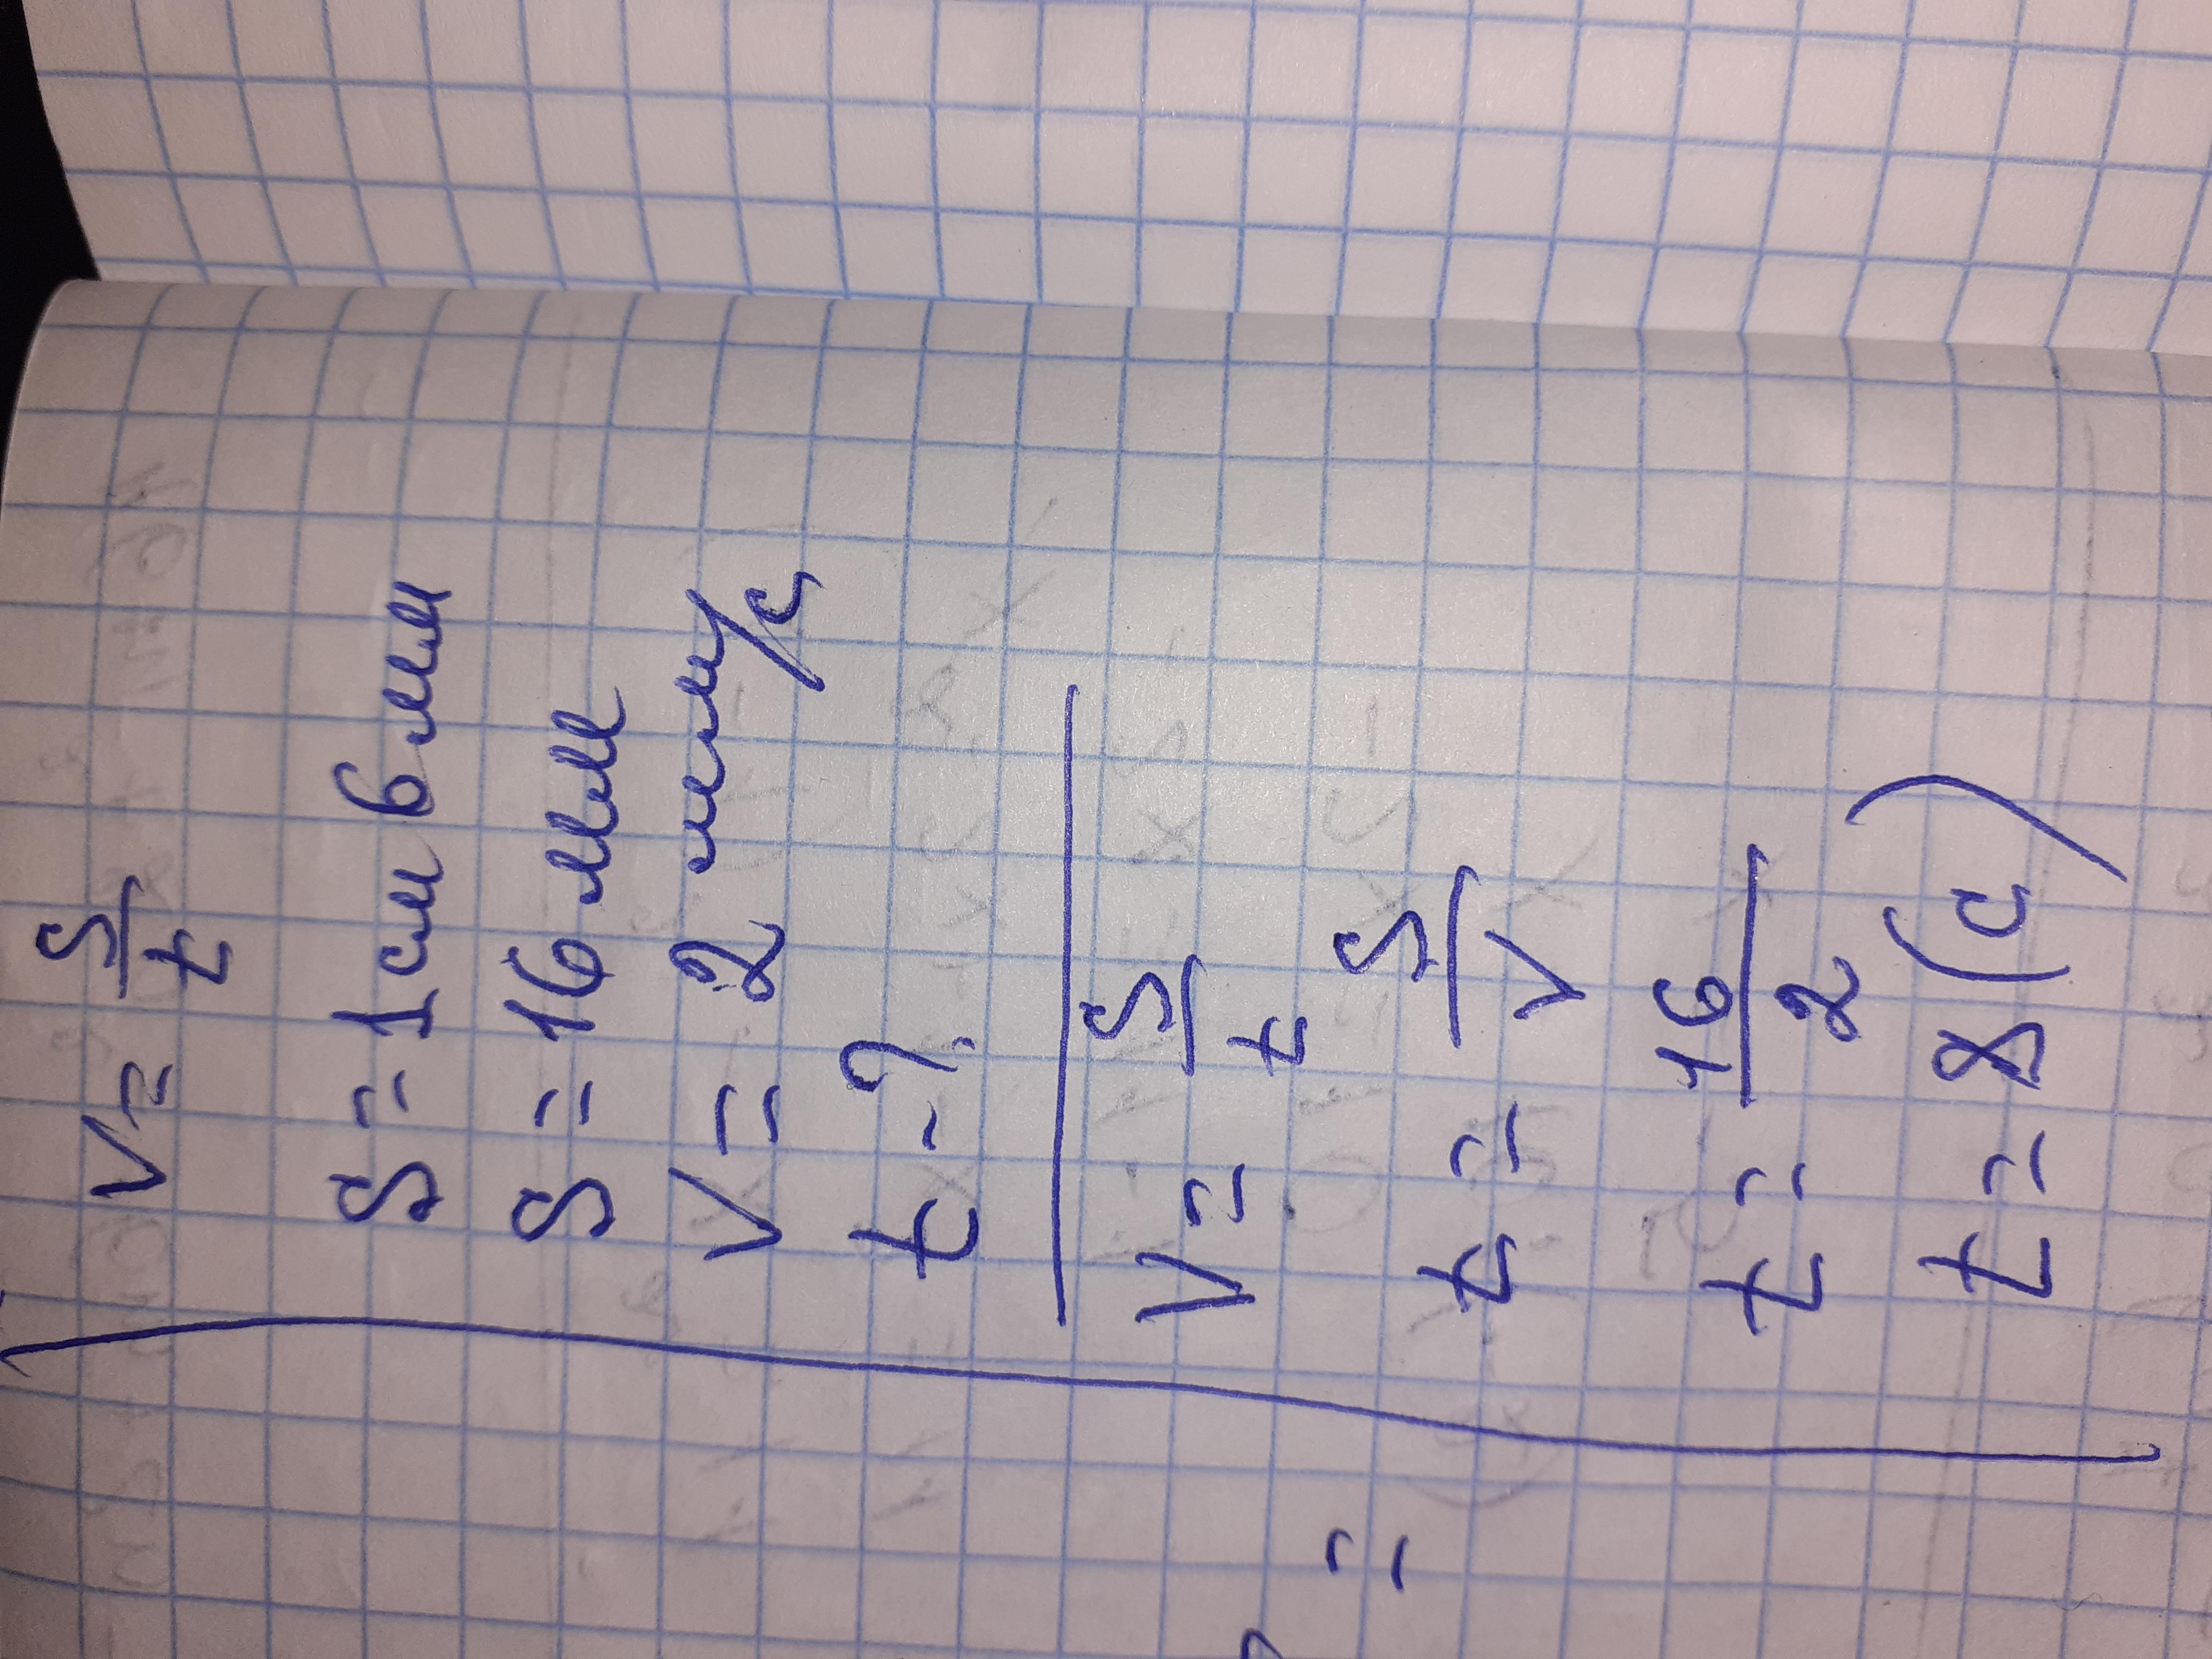 V = S/t
S = 1 см 6 мм
S = 16 мм
V = 2 мм/с
t - ?
V = S/t
t = S/V
t = 16/2
t = 8 (с)
=